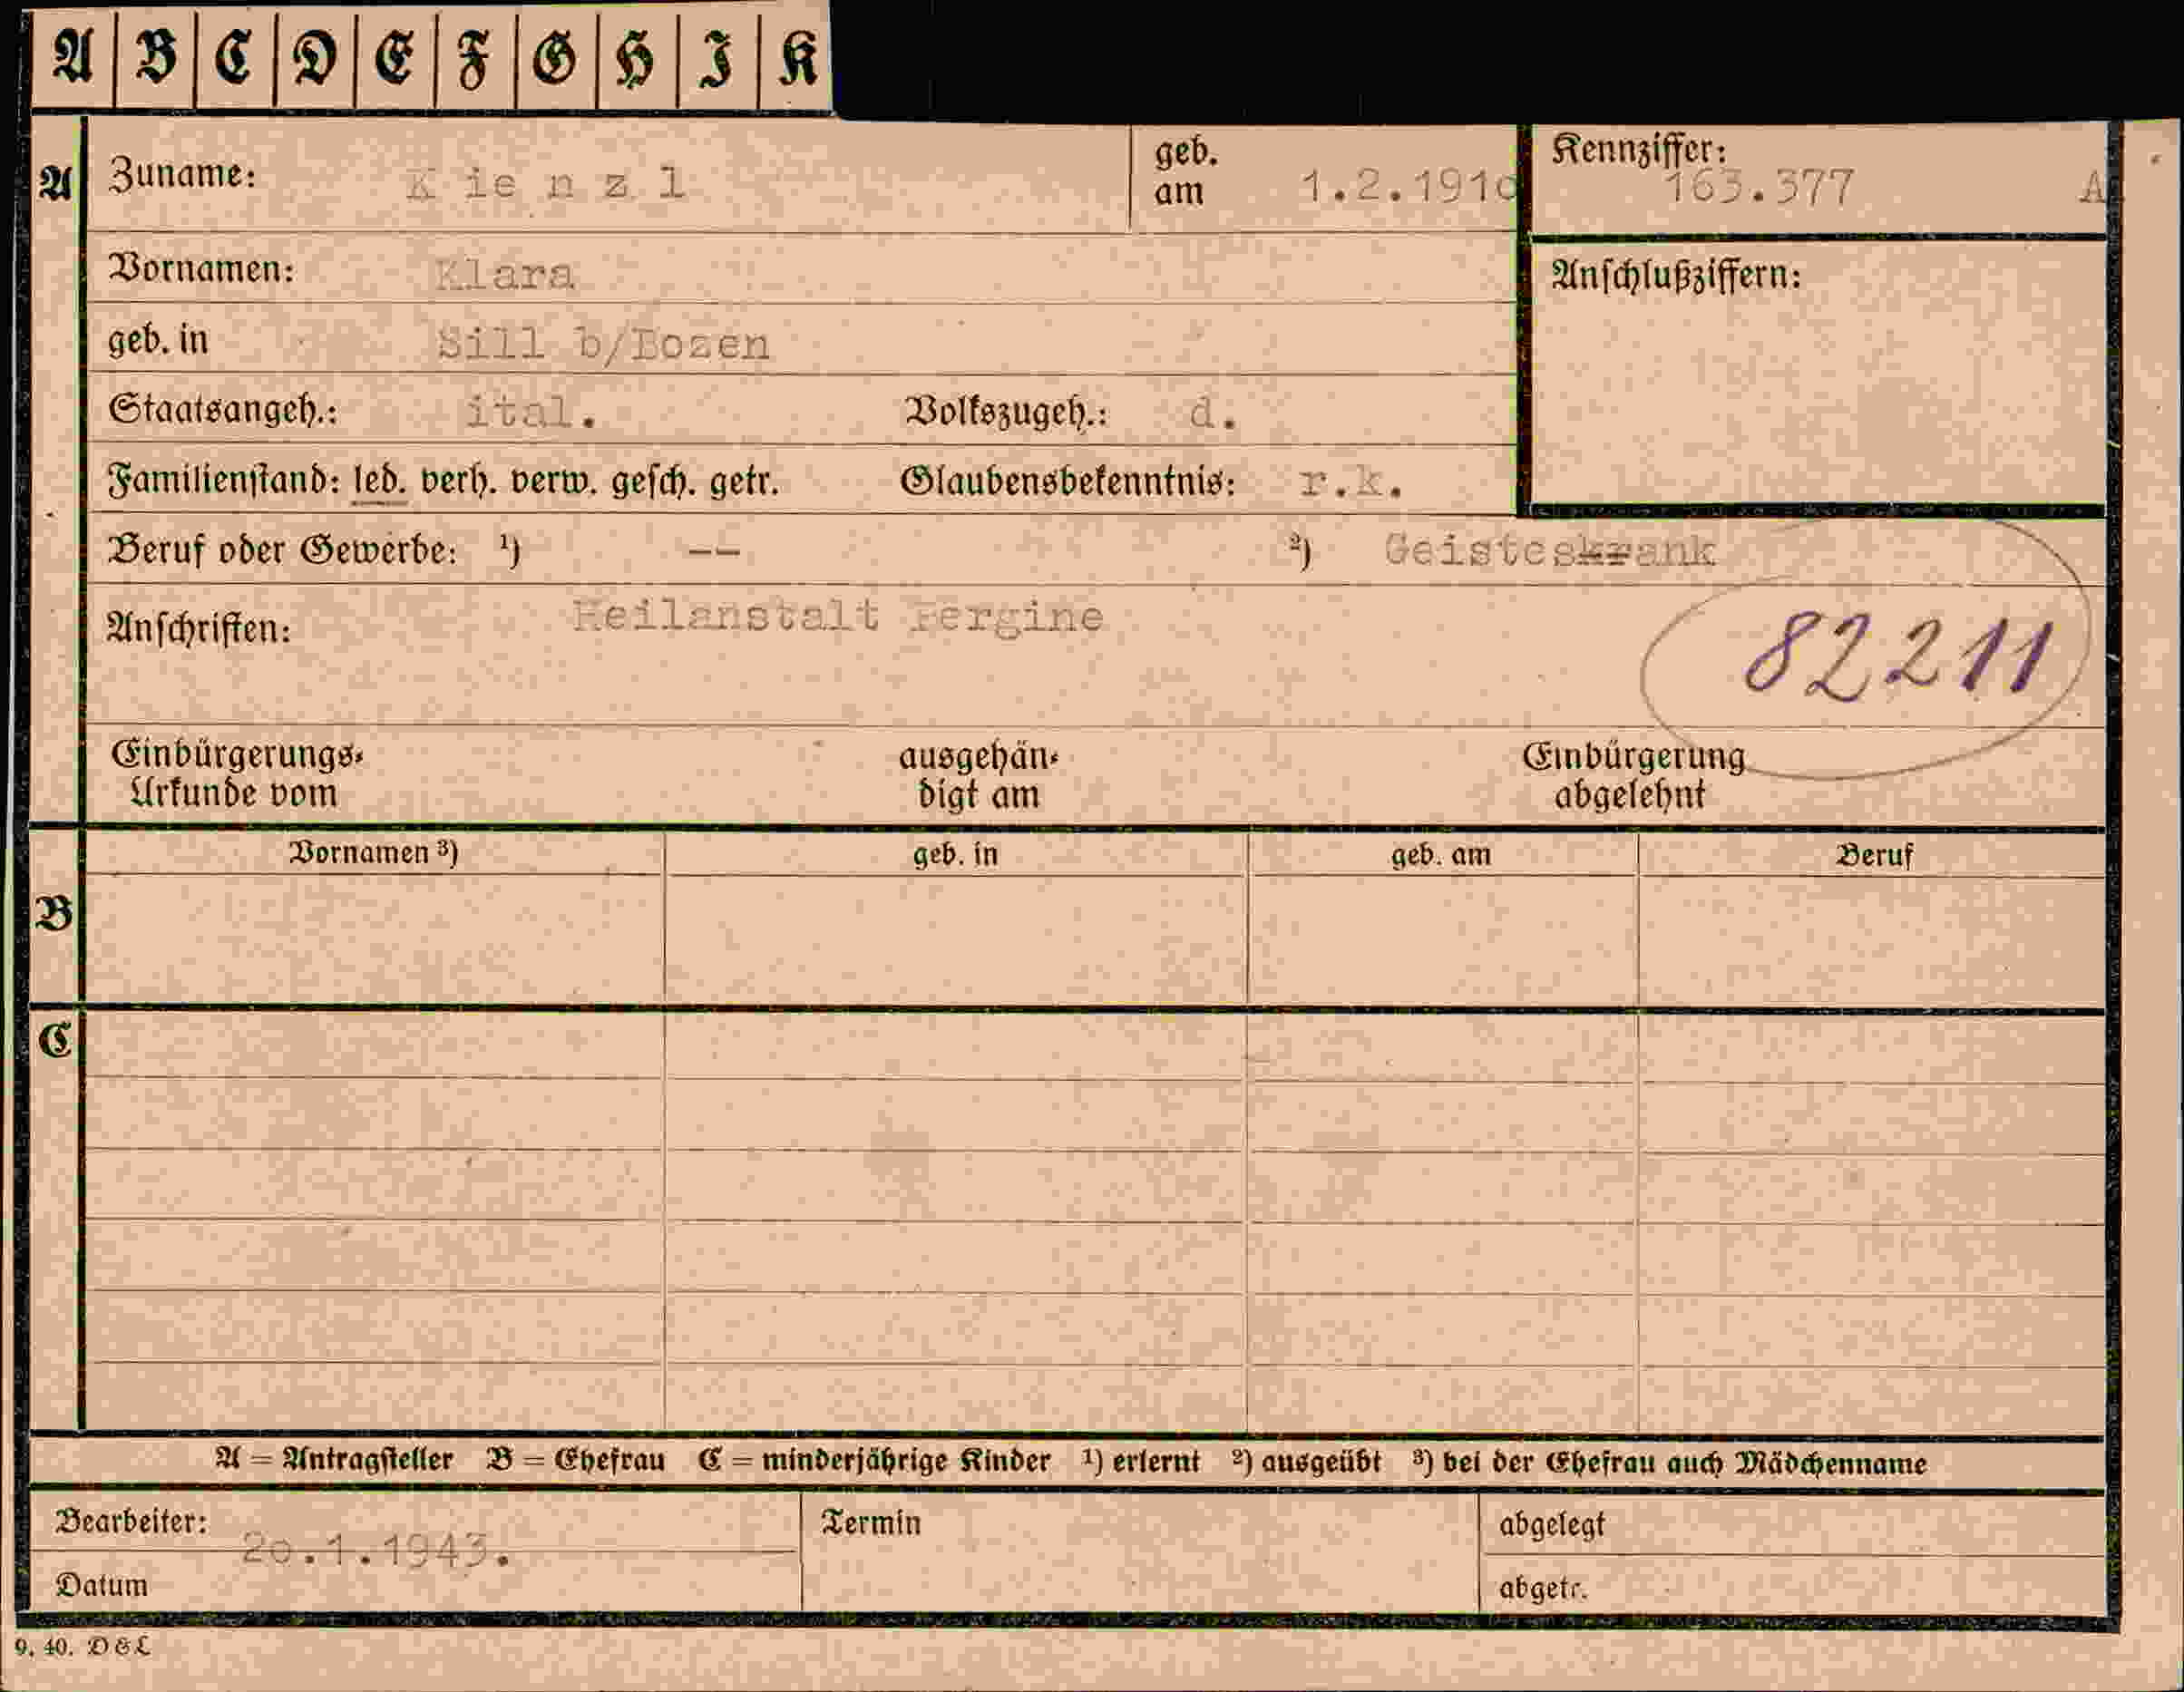 A B C D E F G H I K
A Zuname: Kienzl geb. am 1.2.1910 Kennziffer: 163.377 A
Vornamen: Klara Anschlußziffern:
geb. in Sill b/Bozen
Staatsangeh.: ital. Volkszugeh.: d.
Familienstand: led. verh. verw. gesch. getr. Glaubensbekenntnis: r.k.
Beruf oder Gewerbe: ¹) -- ²) Geisteskrank
Anschriften: Heilanstalt Pergine
82211
Einbürgerungs- ausgehän- Einbürgerung
Urkunde vom digt am abgelehnt
Vornamen ³) geb. in geb. am Beruf
B
C
A = Antragsteller B = Ehefrau C = minderjährige Kinder ¹) erlernt ²) ausgeübt ³) bei der Ehefrau auch Mädchenname
Bearbeiter: Termin abgelegt
20.1.1943.
Datum abgetr.
9. 40. D & L